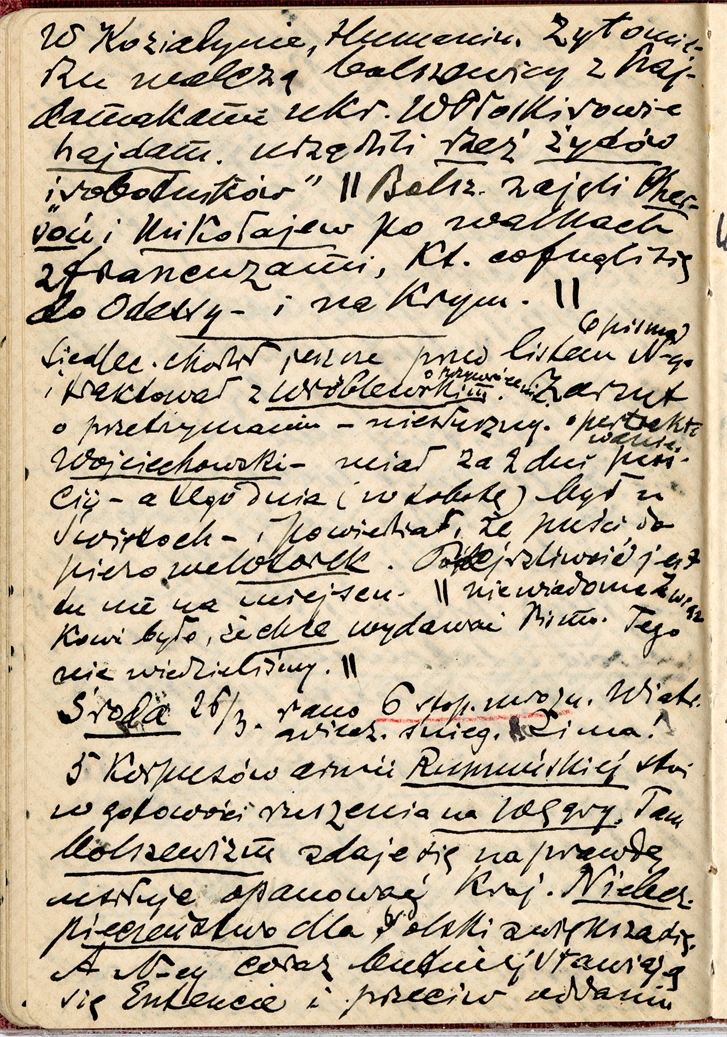 W Koziatynie, Humaniu. Żytomie-
rzu walczą bolszewicy z haj-
damakami ukr. W Płoskirowie
hajdam. urządzili rzeź żydów
i robotników" || Bolsz. zajęli Cher-
soń i Mikołajew po walkach
z francuzami, kt. cofnęli się
do Odessy - i na Krym. ||
Siedlec. chodził jeszcze przed listem N-go
(o pismo)
i traktował z Wróblewskim. Zarzut
o przetrzymaniu - niesłuszny.
Wojciechowski - miał za 2 dni puś-
cić - a tygodnia (w sobotę) był u
Świętoch - i powiedział, że puści do
piero we wtorek. Podejrzliwość jest
tu nie na miejscu. || niewiadomo
było, że chce wydawać Pismo. Tego
nie wiedzieliśmy. ||
Środa 26/3. rano 6 stop. mrozu. Wiatr.
wiecz. śnieg. Zima!
5 Korpusów armii Rumuńskiej stoi
w gotowości ruszenia na Węgry. Tam
bolszewizm zdaje się naprawdę
usiłuje opanować Kraj. Niebez-
pieczeństwo dla Polski zwiększa się.
A N-cy coraz butniej stawiają
się Entencie i przeciw oddaniu